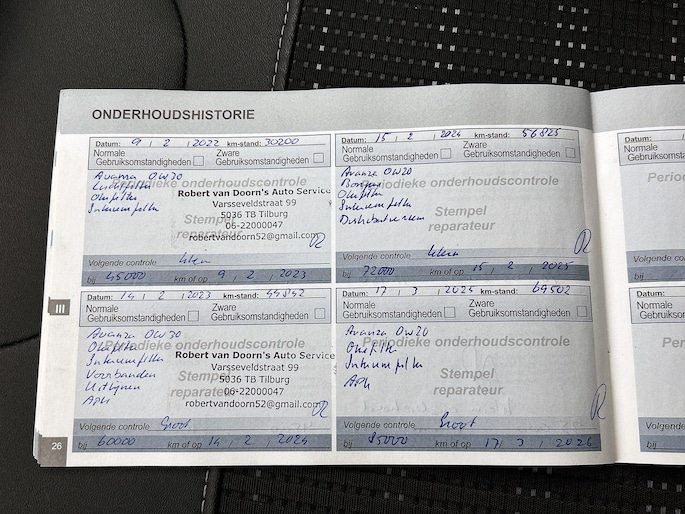 ONDERHOUDSHISTORIE
Datum: 9 / 2 / 2022 km-stand: 30200
Normale Gebruiksomstandigheden
Zware Gebruiksomstandigheden
Avanza 0W30
Luchtfilter
Oliefilter
Interieurfilter
Periodieke onderhoudscontrole
Stempel
reparateur
Robert van Doorn's Auto Service
Varsseveldstraat 99
5036 TB Tilburg
06-22000047
robertvandoorn52@gmail.com
Volgende controle Klein
bij 45000 km of op 9 / 2 / 2023
Datum: 14 / 2 / 2023 km-stand: 44842
Normale Gebruiksomstandigheden
Zware Gebruiksomstandigheden
Avanza 0W30
Oliefilter
Interieurfilter
Voorbanden
Uitlijnen
APK
Periodieke onderhoudscontrole
Stempel
reparateur
Robert van Doorn's Auto Service
Varsseveldstraat 99
5036 TB Tilburg
06-22000047
robertvandoorn52@gmail.com
Volgende controle Groot
bij 60000 km of op 14 / 2 / 2024
III
26
Datum: 15 / 2 / 2024 km-stand: 56825
Normale Gebruiksomstandigheden
Zware Gebruiksomstandigheden
Avanza 0W20
Bougies
Oliefilter
Interieurfilter
Distributieriem
Periodieke onderhoudscontrole
Stempel
reparateur
Volgende controle Klein
bij 72000 km of op 15 / 2 / 2025
Datum: 17 / 3 / 2025 km-stand: 69502
Normale Gebruiksomstandigheden
Zware Gebruiksomstandigheden
Avanza 0W20
Oliefilter
Interieurfilter
APK
Periodieke onderhoudscontrole
Stempel
reparateur
Volgende controle Groot
bij 85000 km of op 17 / 3 / 2026
Datum:
Normale
Gebruiksom
Period
Volgende co
bij
Datum:
Normale
Gebruiksom
Perio
Volgende
bij